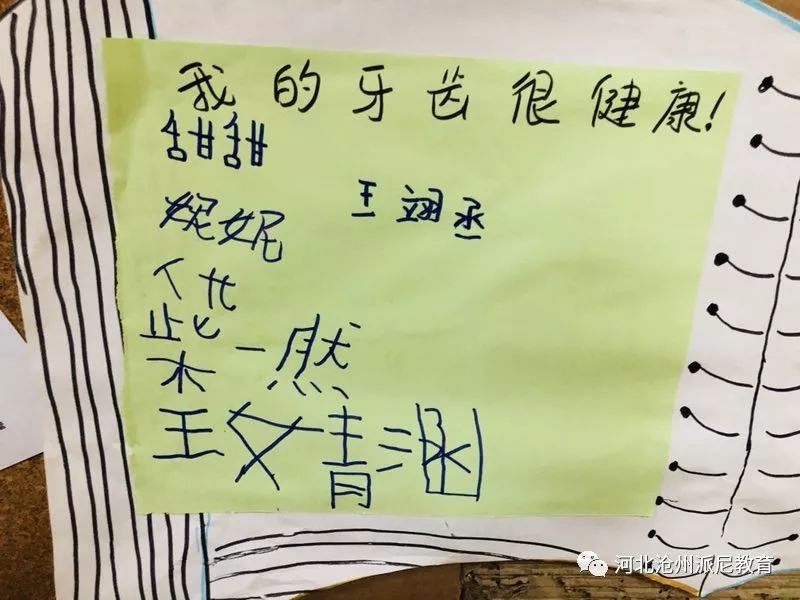 我的牙齿很健康!
甜甜
王翊丞
妮妮
柴一然
王婧涵
河北沧州派尼教育